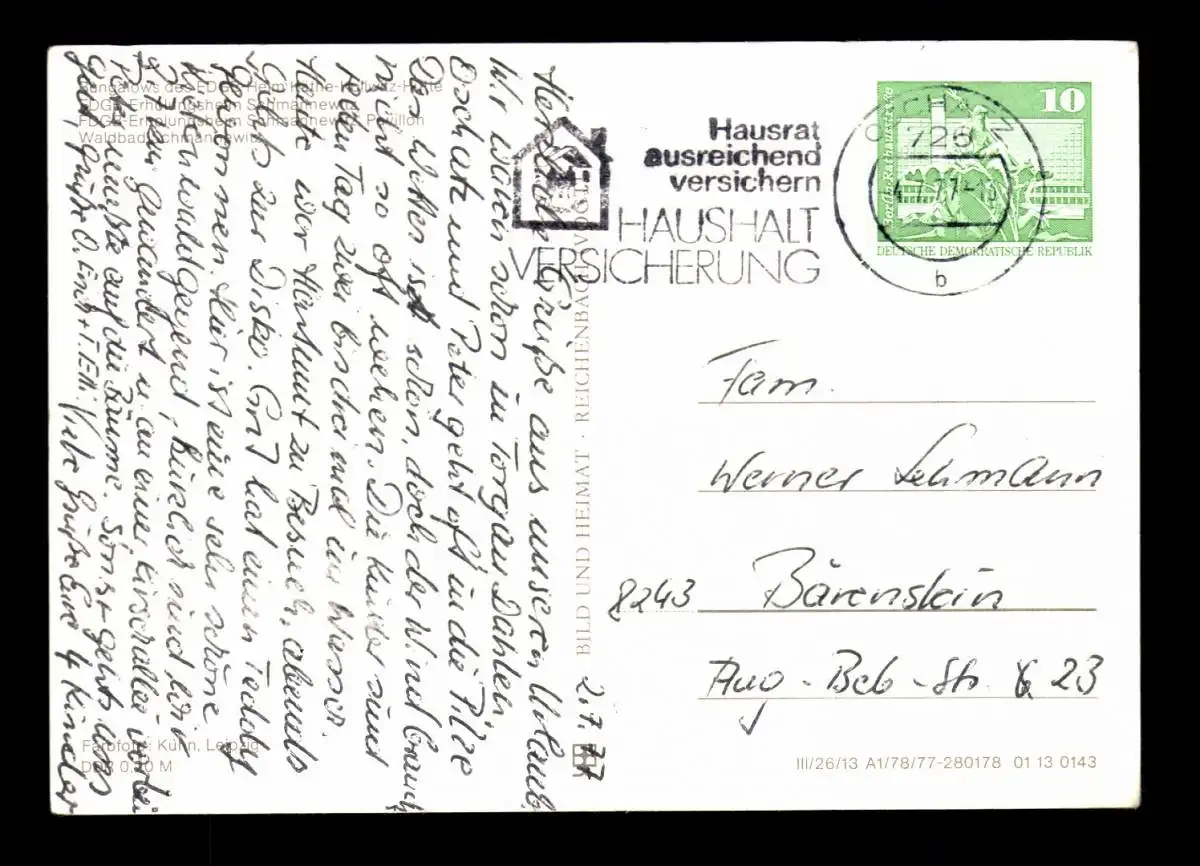 Bungalows des FDGB-Heim Käthe-Kollwitz-Hütte
FDGB-Erholungsheim Schmannewitz
FDGB-Erholungsheim Schmannewitz, Pavillon
Waldbad Schmannewitz
Herzliche Grüße aus unseren Urlaub.
Wir waren schon in Torgau, Dahlen,
Oschatz und Peter geht oft in die Pilze
Das Wetter ist schön, doch der Wind brauch
nicht so oft wehen. Die Kinder sind
jeden Tag zwei bischen mal im Wasser.
Heute war Hartmut zu Besuch, abends
Gehts zur Disko. Grit hat einen Teddy
gewonnen. Hier ist eine sehr schöne
Heidewaldgegend, kürzlich sind wir
27 km gewandert u. an einer Kirschallee vorbei
Peter mußte auf die Bäume. Sonst gehts uns
gut, Grüße O. Viele Grüße Eure 4 Kinder
Farbfoto: Kühn, Leipzig
DDR 0,20 M
BILD UND HEIMAT · REICHENBACH VOGTL
2.7.77
Hausrat
ausreichend
versichern
HAUSHALT
VERSICHERUNG
OSCHATZ 1
726
4.7.77-1
b
10
Berlin, Rathausstraße
DEUTSCHE DEMOKRATISCHE REPUBLIK
Fam.
Werner Lehmann
8243 Bärenstein
Aug-Beb-Str. 23
III/26/13 A1/78/77-280178 01 13 0143